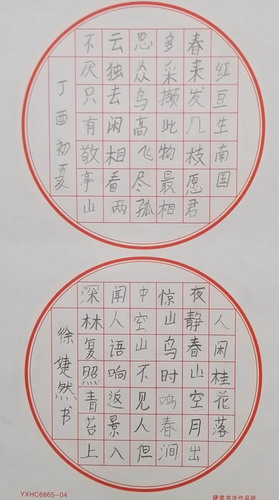 红豆生南国
春来发几枝愿君
多采撷此物最相
思众鸟高飞尽孤
云独去闲相看两
不厌只有敬亭山
丁酉初夏
人闲桂花落
夜静春山空月出
惊山鸟时鸣春涧
中空山不见人但
闻人语响返景入
深林复照青苔上
徐婕然书
YXHC6865-04
硬笔书法作品纸